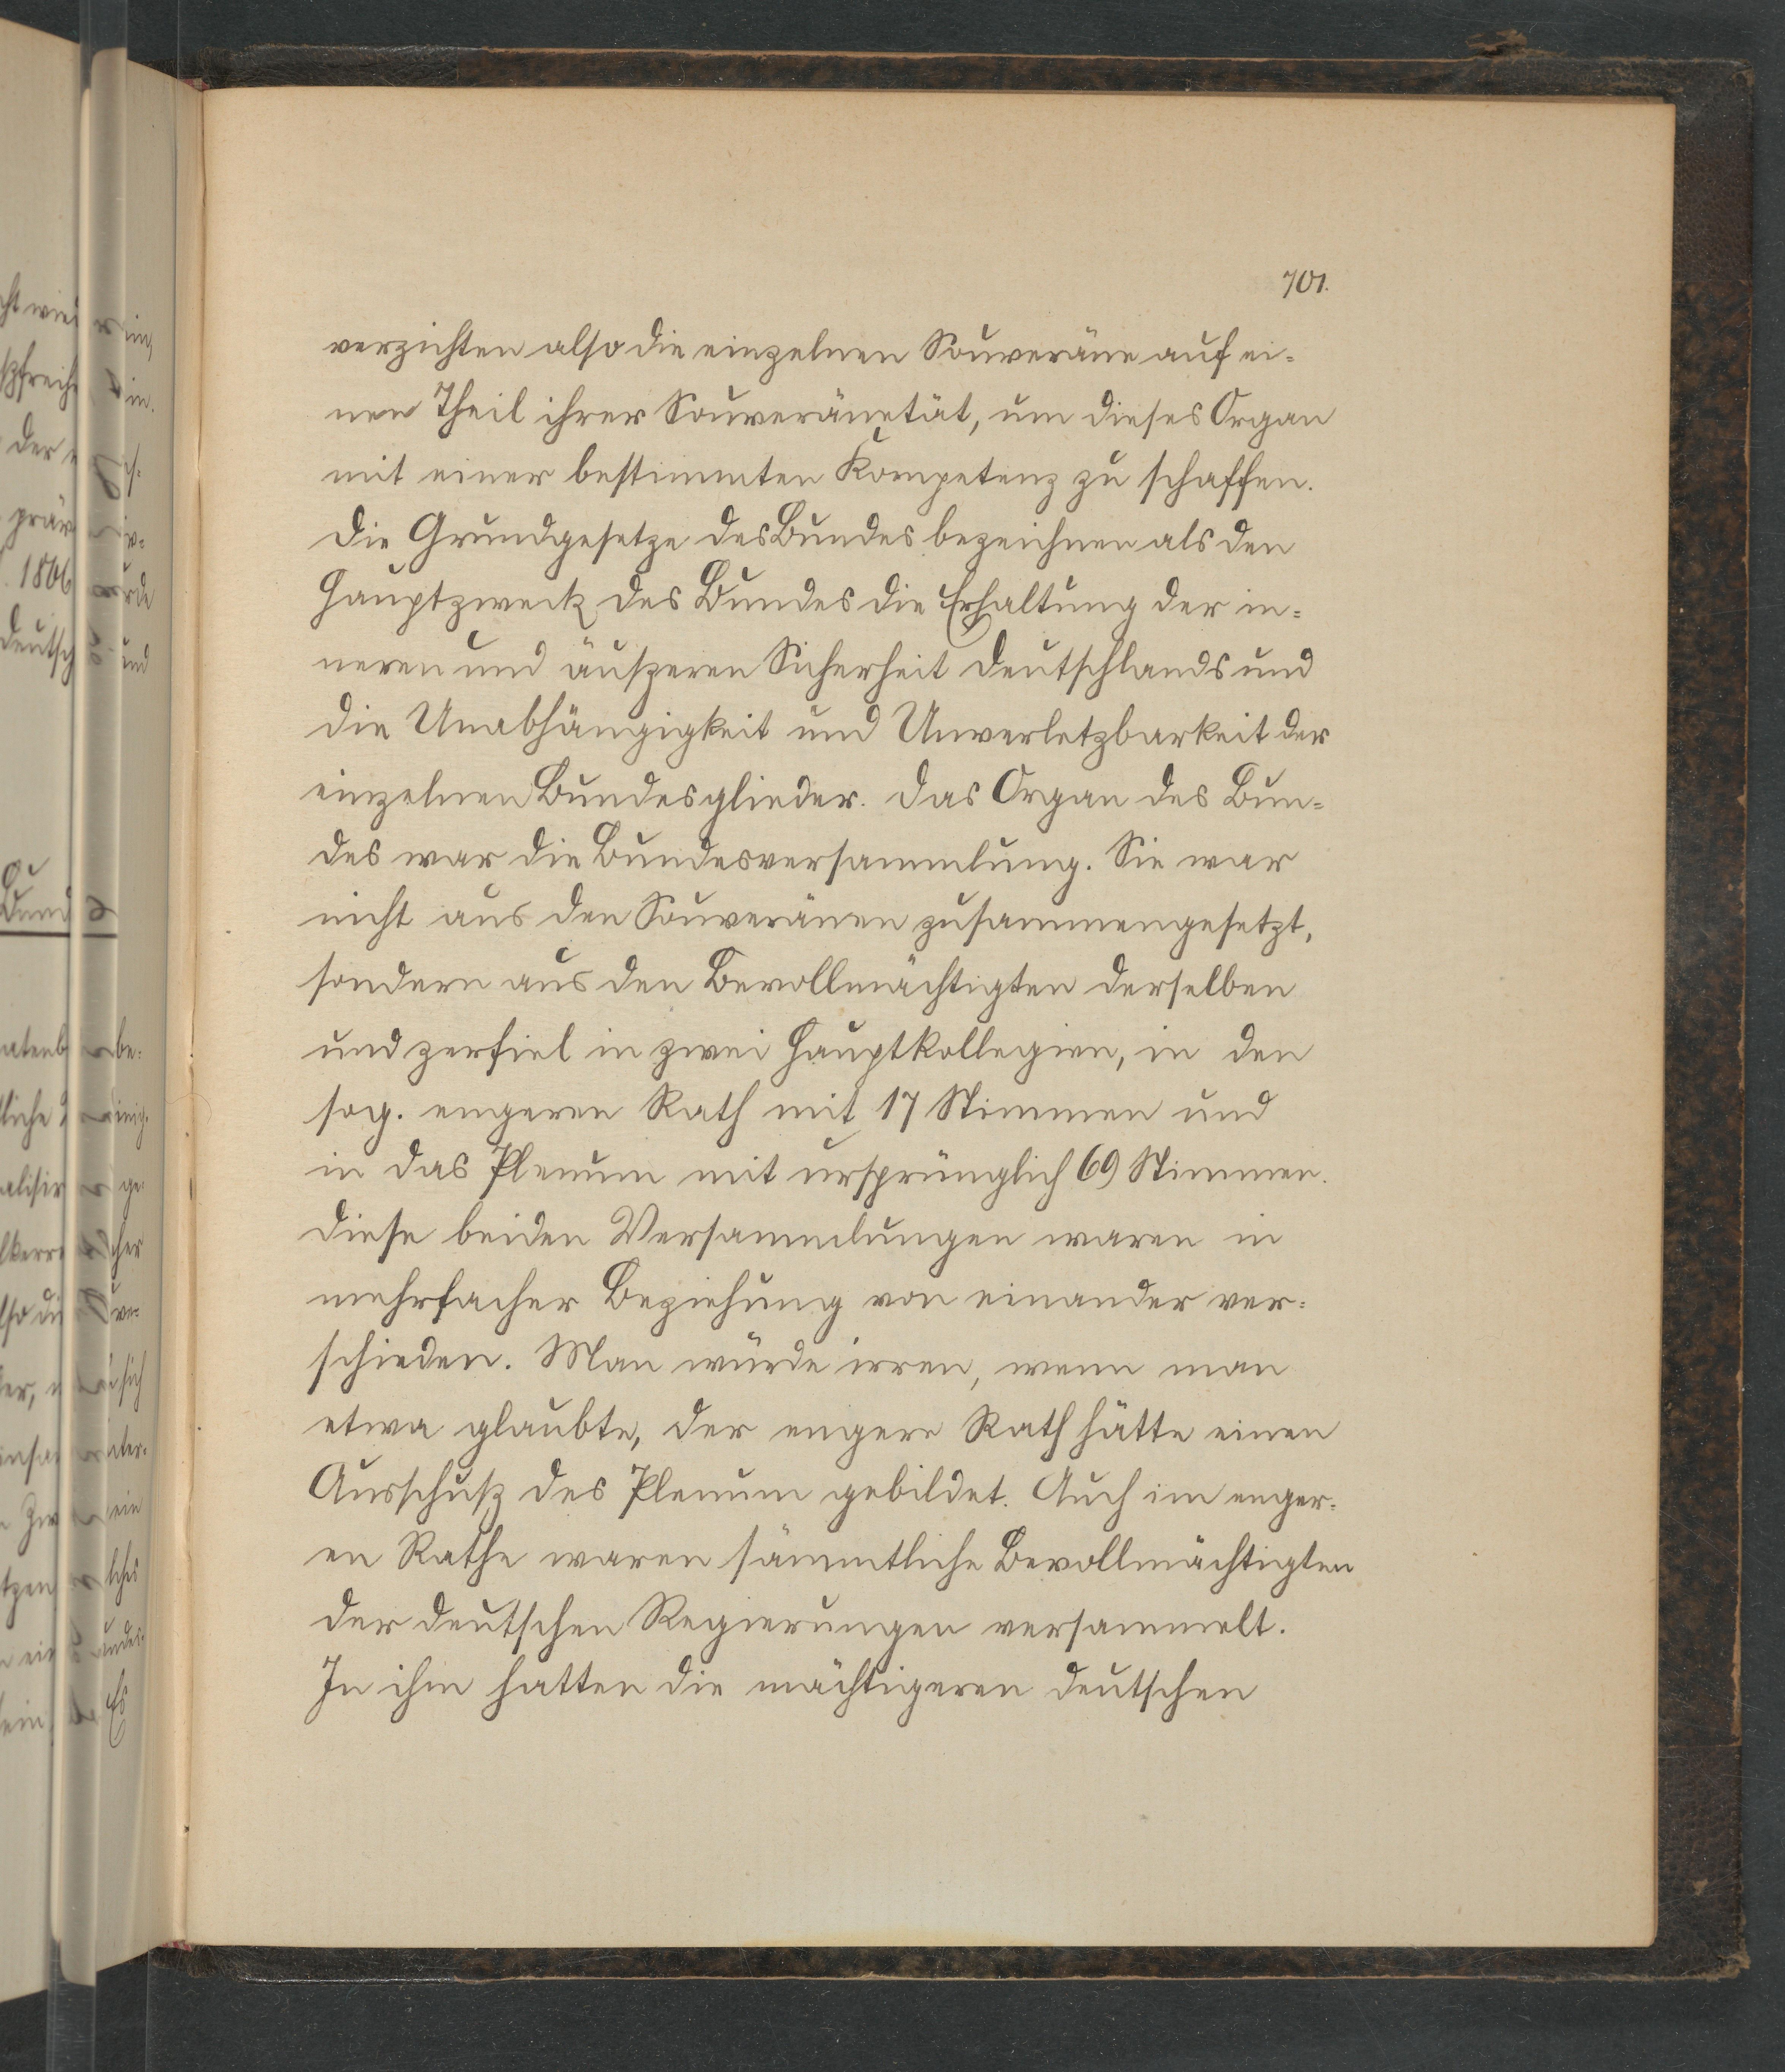 701.
verzichten also die einzelnen Souveräne auf ei-
nen Theil ihrer Souveränetät, um dieses Organ
mit einer bestimmten Kompetenz zu schaffen.
Die Grundgesetze des Bundes bezeichnen als den
Hauptzweck des Bundes die Erhaltung der in-
neren und äußeren Sicherheit Deutschlands und
die Unabhängigkeit und Unverletzbarkeit der
einzelnen Bundesglieder. Das Organ des Bun-
des war die Bundesversammlung. Sie war
nicht aus den Souveränen zusammengesetzt,
sondern aus den Bevollmächtigten derselben
und zerfiel in zwei Hauptkollegien, in den
sog. engeren Rath mit 17 Stimmen und
in das Plenum mit ursprünglich 69 Stimmen.
Diese beiden Versammlungen waren in
mehrfacher Beziehung von einander ver-
schieden. Man würde irren, wenn man
etwa glaubte, der engere Rath hätte einen
Ausschuß des Plenum gebildet. Auch im enger-
en Rathe waren sämmtliche Bevollmächtigten
der deutschen Regierungen versammelt.
In ihm hatten die mächtigeren deutschen